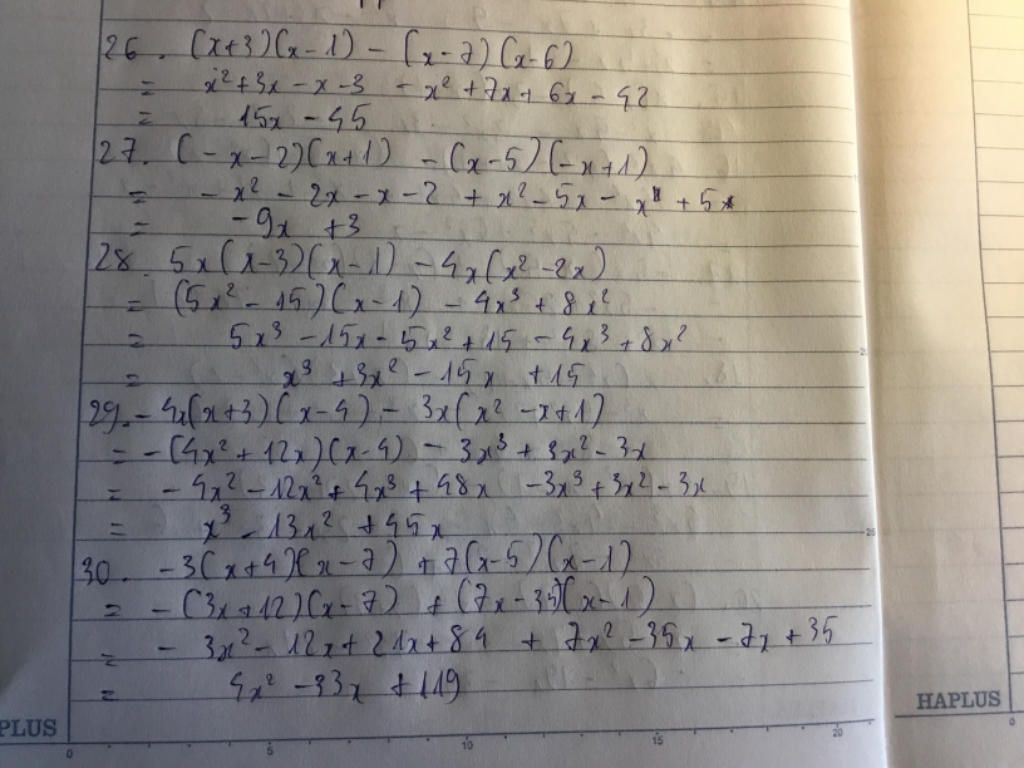 26. (x+3)(x-1) - (x-7)(x-6)
= x²+3x-x-3 - x²+7x+6x-42
= 15x-45
27. (-x-2)(x+1) - (x-5)(-x+1)
= -x²-2x-x-2+x²-5x-x+5
= -9x+3
28. 5x(x-3)(x-1)-4x(x²-2x)
= (5x²-15)(x-1)-4x³+8x²
= 5x³-15x-5x²+15-4x³+8x²
= x³+3x²-15x+15
29. -4x(x+3)(x-4)-3x(x²-x+1)
= -(4x²+12x)(x-4)-3x³+3x²-3x
= -4x²-12x²+4x³+48x-3x³+3x²-3x
= x³-13x²+45x
30. -3(x+4)(x-7)+7(x-5)(x-1)
= -(3x+12)(x-7)+(7x-35)(x-1)
= -3x²-12x+21x+84+7x²-35x-7x+35
= 4x²-33x+119
PLUS HAPLUS
0 5 10 15 20
25
0